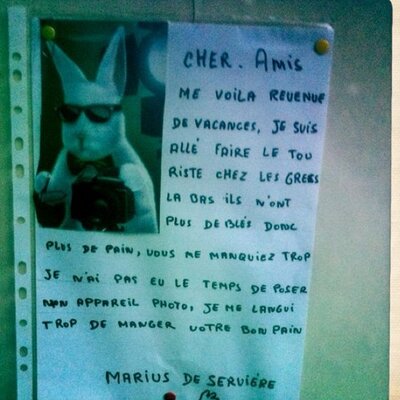 CHER. AMIS
ME VOILA REVENUE
DE VACANCES, JE SUIS
ALLÉ FAIRE LE TOU
RISTE CHEZ LES GRECS
LA BAS ILS N'ONT
PLUS DE BLÉS DONC
PLUS DE PAIN, VOUS ME MANQUIEZ TROP
JE N'AI PAS EU LE TEMPS DE POSER
MON APPAREIL PHOTO, JE ME LANGUI
TROP DE MANGER VOTRE BON PAIN
MARIUS DE SERVIÈRE